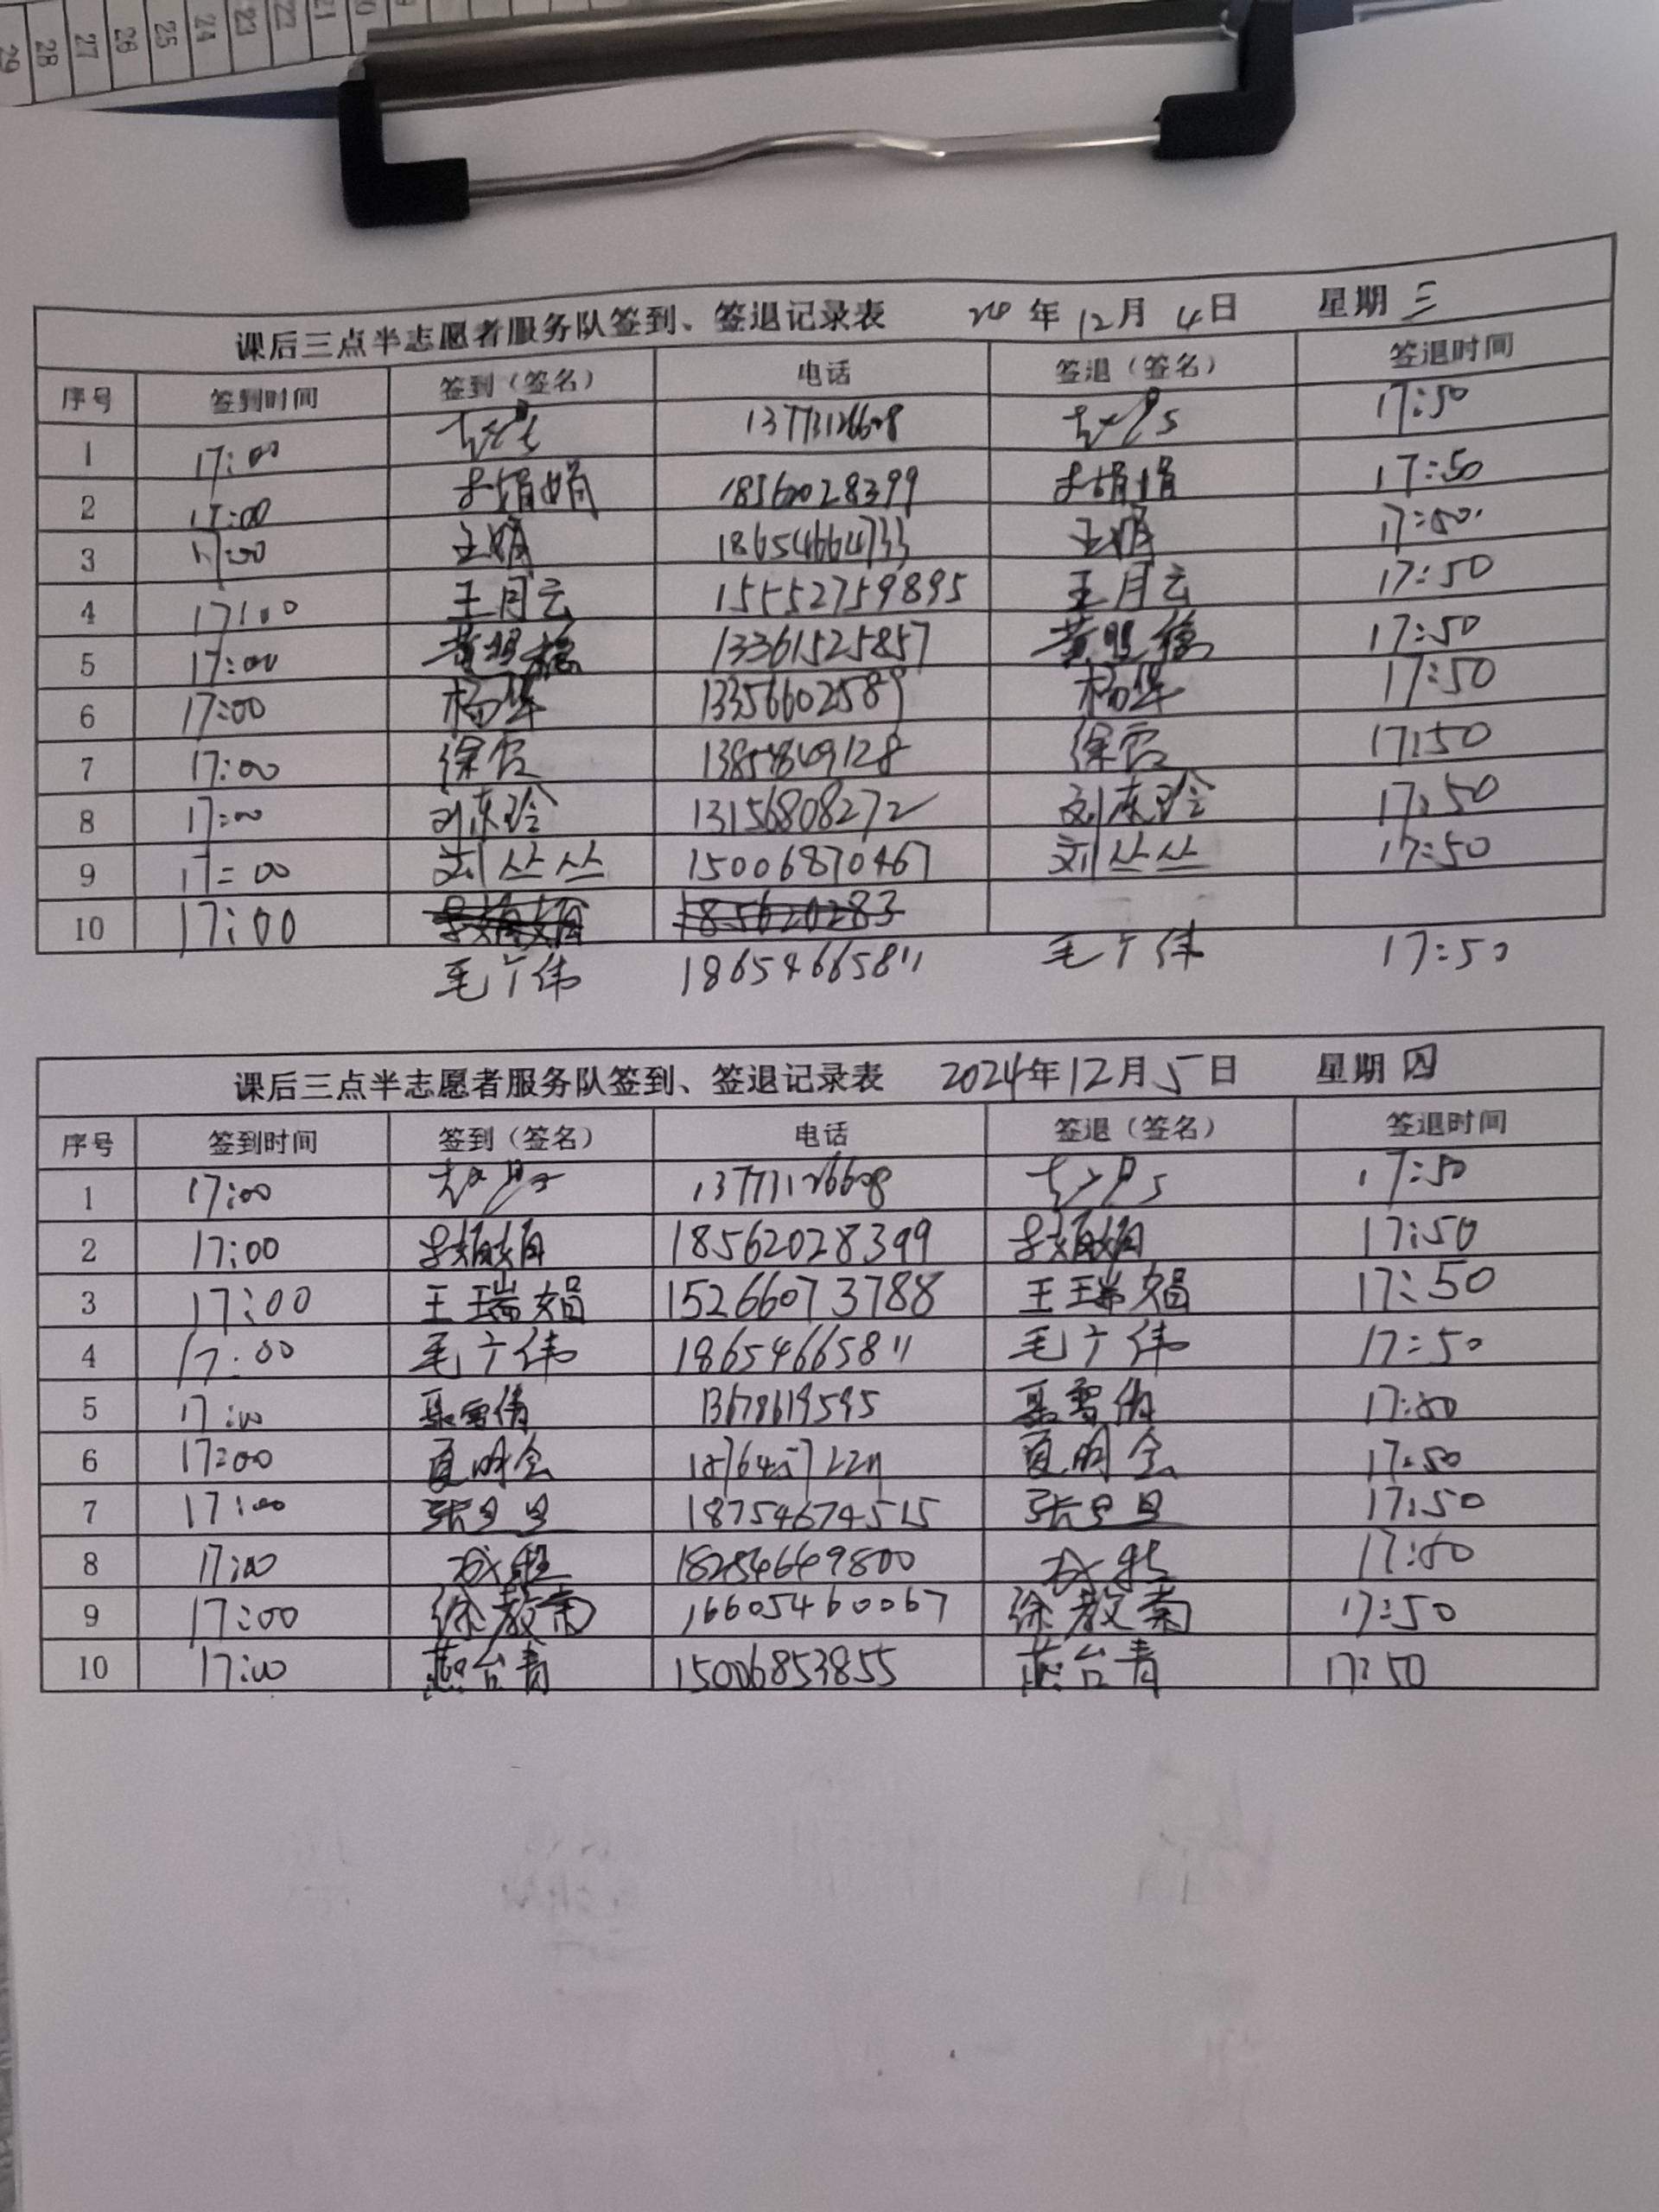 29 28 27 26 25 24 23 22 21
课后三点半志愿者服务队签到、签退记录表 24年12月4日 星期三
序号 签到时间 签到（签名） 电话 签退（签名） 签退时间
1 17:00 17:50
2 17:00 娟娟 18562028399 娟娟 17:50
3 17:00 王娟 18654664733 王娟 17:50
4 17:00 王月云 15552759895 王月云 17:50
5 17:00 13361525857 17:50
6 17:00 杨华 13356602589 杨华 17:50
7 17:00 徐霞 徐霞 17:50
8 17:00 刘东玲 13156808272 刘东玲 17:50
9 17:00 刘丛丛 15006870467 刘丛丛 17:50
10 17:00
毛广伟 18654665811 毛广伟 17:50
课后三点半志愿者服务队签到、签退记录表 2024年12月5日 星期四
序号 签到时间 签到（签名） 电话 签退（签名） 签退时间
1 17:00 17:50
2 17:00 娟娟 18562028399 娟娟 17:50
3 17:00 王瑞娟 15266073788 王瑞娟 17:50
4 17:00 毛广伟 18654665811 毛广伟 17:50
5 17:00 17:50
6 17:00 17:50
7 17:00 张旦旦 18754674515 张旦旦 17:50
8 17:00 17:50
9 17:00 徐教南 16605460067 徐教南 17:50
10 17:00 燕台青 15006853855 燕台青 17:50